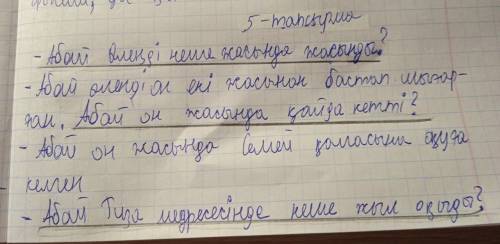 5-тапсырма
- Абай өлеңді неше жасында жасынды?
- Абай өленді он екі жасынан бастап шығар-
ған. Абай он жасында қайда кетті?
- Абай он жасында Семей қаласына оқуға
келген
- Абай Риза медресесінде неше жыл оқыды?